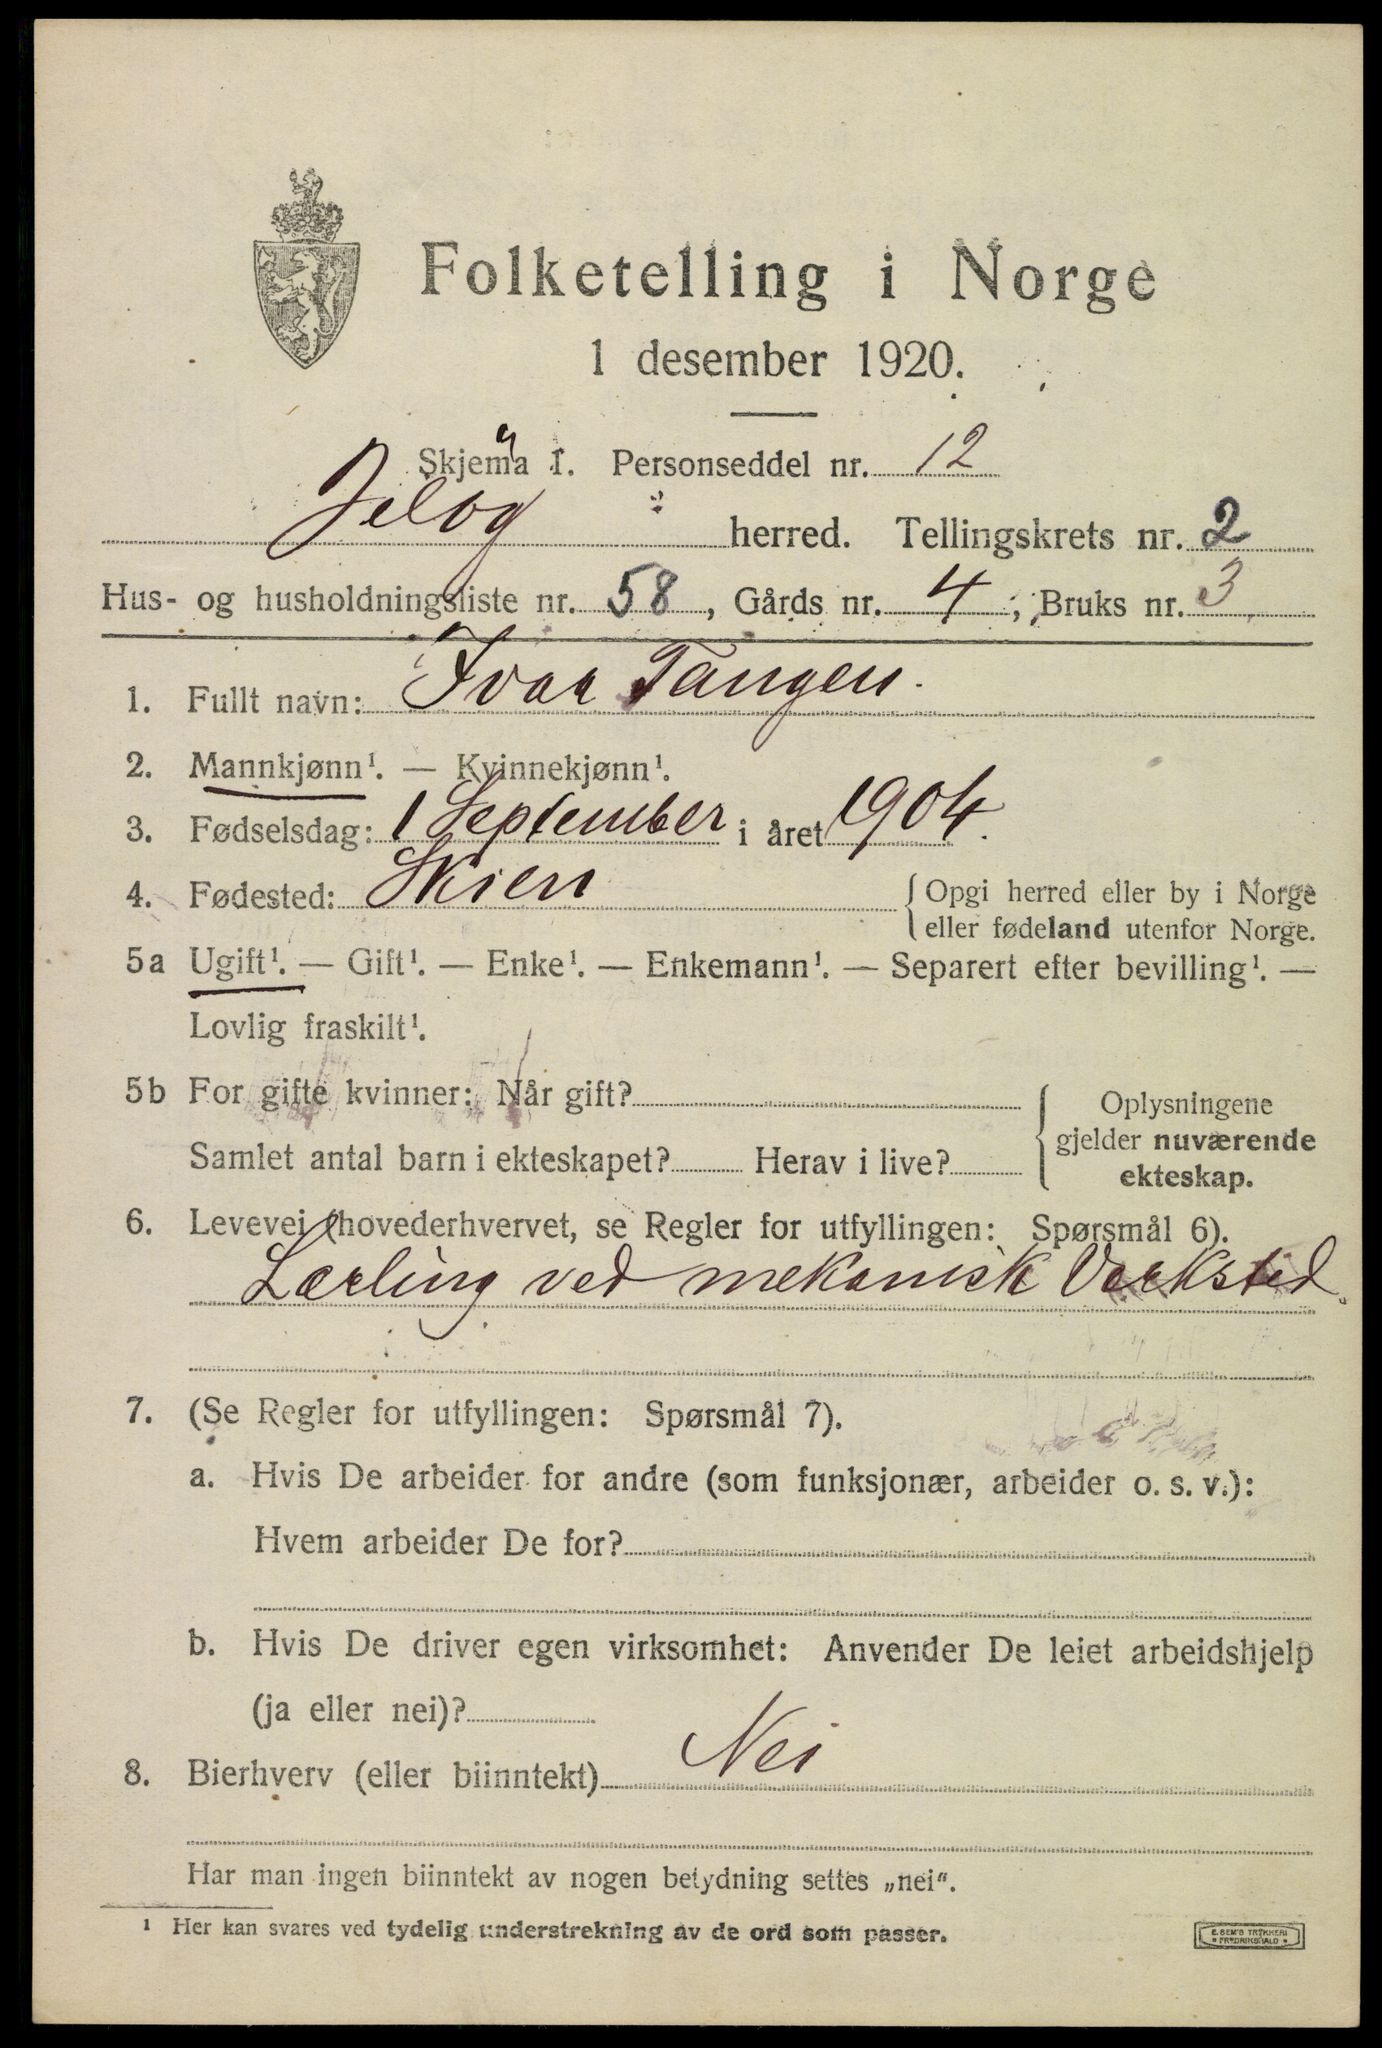 Folketelling i Norge
1 desember 1920.
Skjema 1. Personseddel nr. 12
Jeløy herred. Tellingskrets nr. 2
Hus- og husholdningsliste nr. 58, Gårds nr. 4, Bruks nr. 3
1. Fullt navn: Ivar Tangen.
2. Mannkjønn¹. — Kvinnekjønn¹.
3. Fødselsdag: 1 September i året 1904.
4. Fødested: Skien {Opgi herred eller by i Norge
eller fødeland utenfor Norge.
5a Ugift¹. — Gift¹. — Enke¹. — Enkemann¹. — Separert efter bevilling¹. —
Lovlig fraskilt¹.
5b For gifte kvinner: Når gift? {Oplysningene
gjelder nuværende
Samlet antal barn i ekteskapet? Herav i live? ekteskap.
6. Levevei (hovederhvervet, se Regler for utfyllingen: Spørsmål 6).
Lærling ved mekanisk Værksted.
7. (Se Regler for utfyllingen: Spørsmål 7).
a. Hvis De arbeider for andre (som funksjonær, arbeider o. s. v.):
Hvem arbeider De for?
b. Hvis De driver egen virksomhet: Anvender De leiet arbeidshjelp
(ja eller nei)?
8. Bierhverv (eller biinntekt) Nei
Har man ingen biinntekt av nogen betydning settes „nei“.
¹ Her kan svares ved tydelig understrekning av de ord som passer.
E. SEM'S TRYKKERI
FREDRIKSHALD